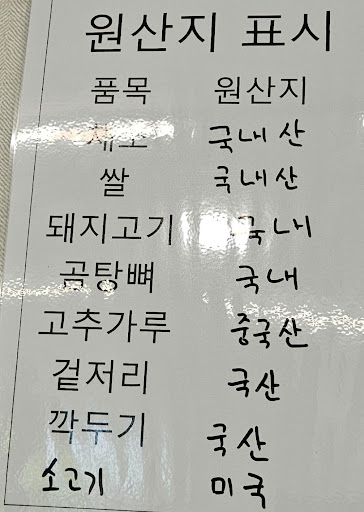 원산지 표시
품목 원산지
채소 국내산
쌀 국내산
돼지고기 국내
곰탕뼈 국내
고추가루 중국산
겉저리 국산
깍두기 국산
소고기 미국